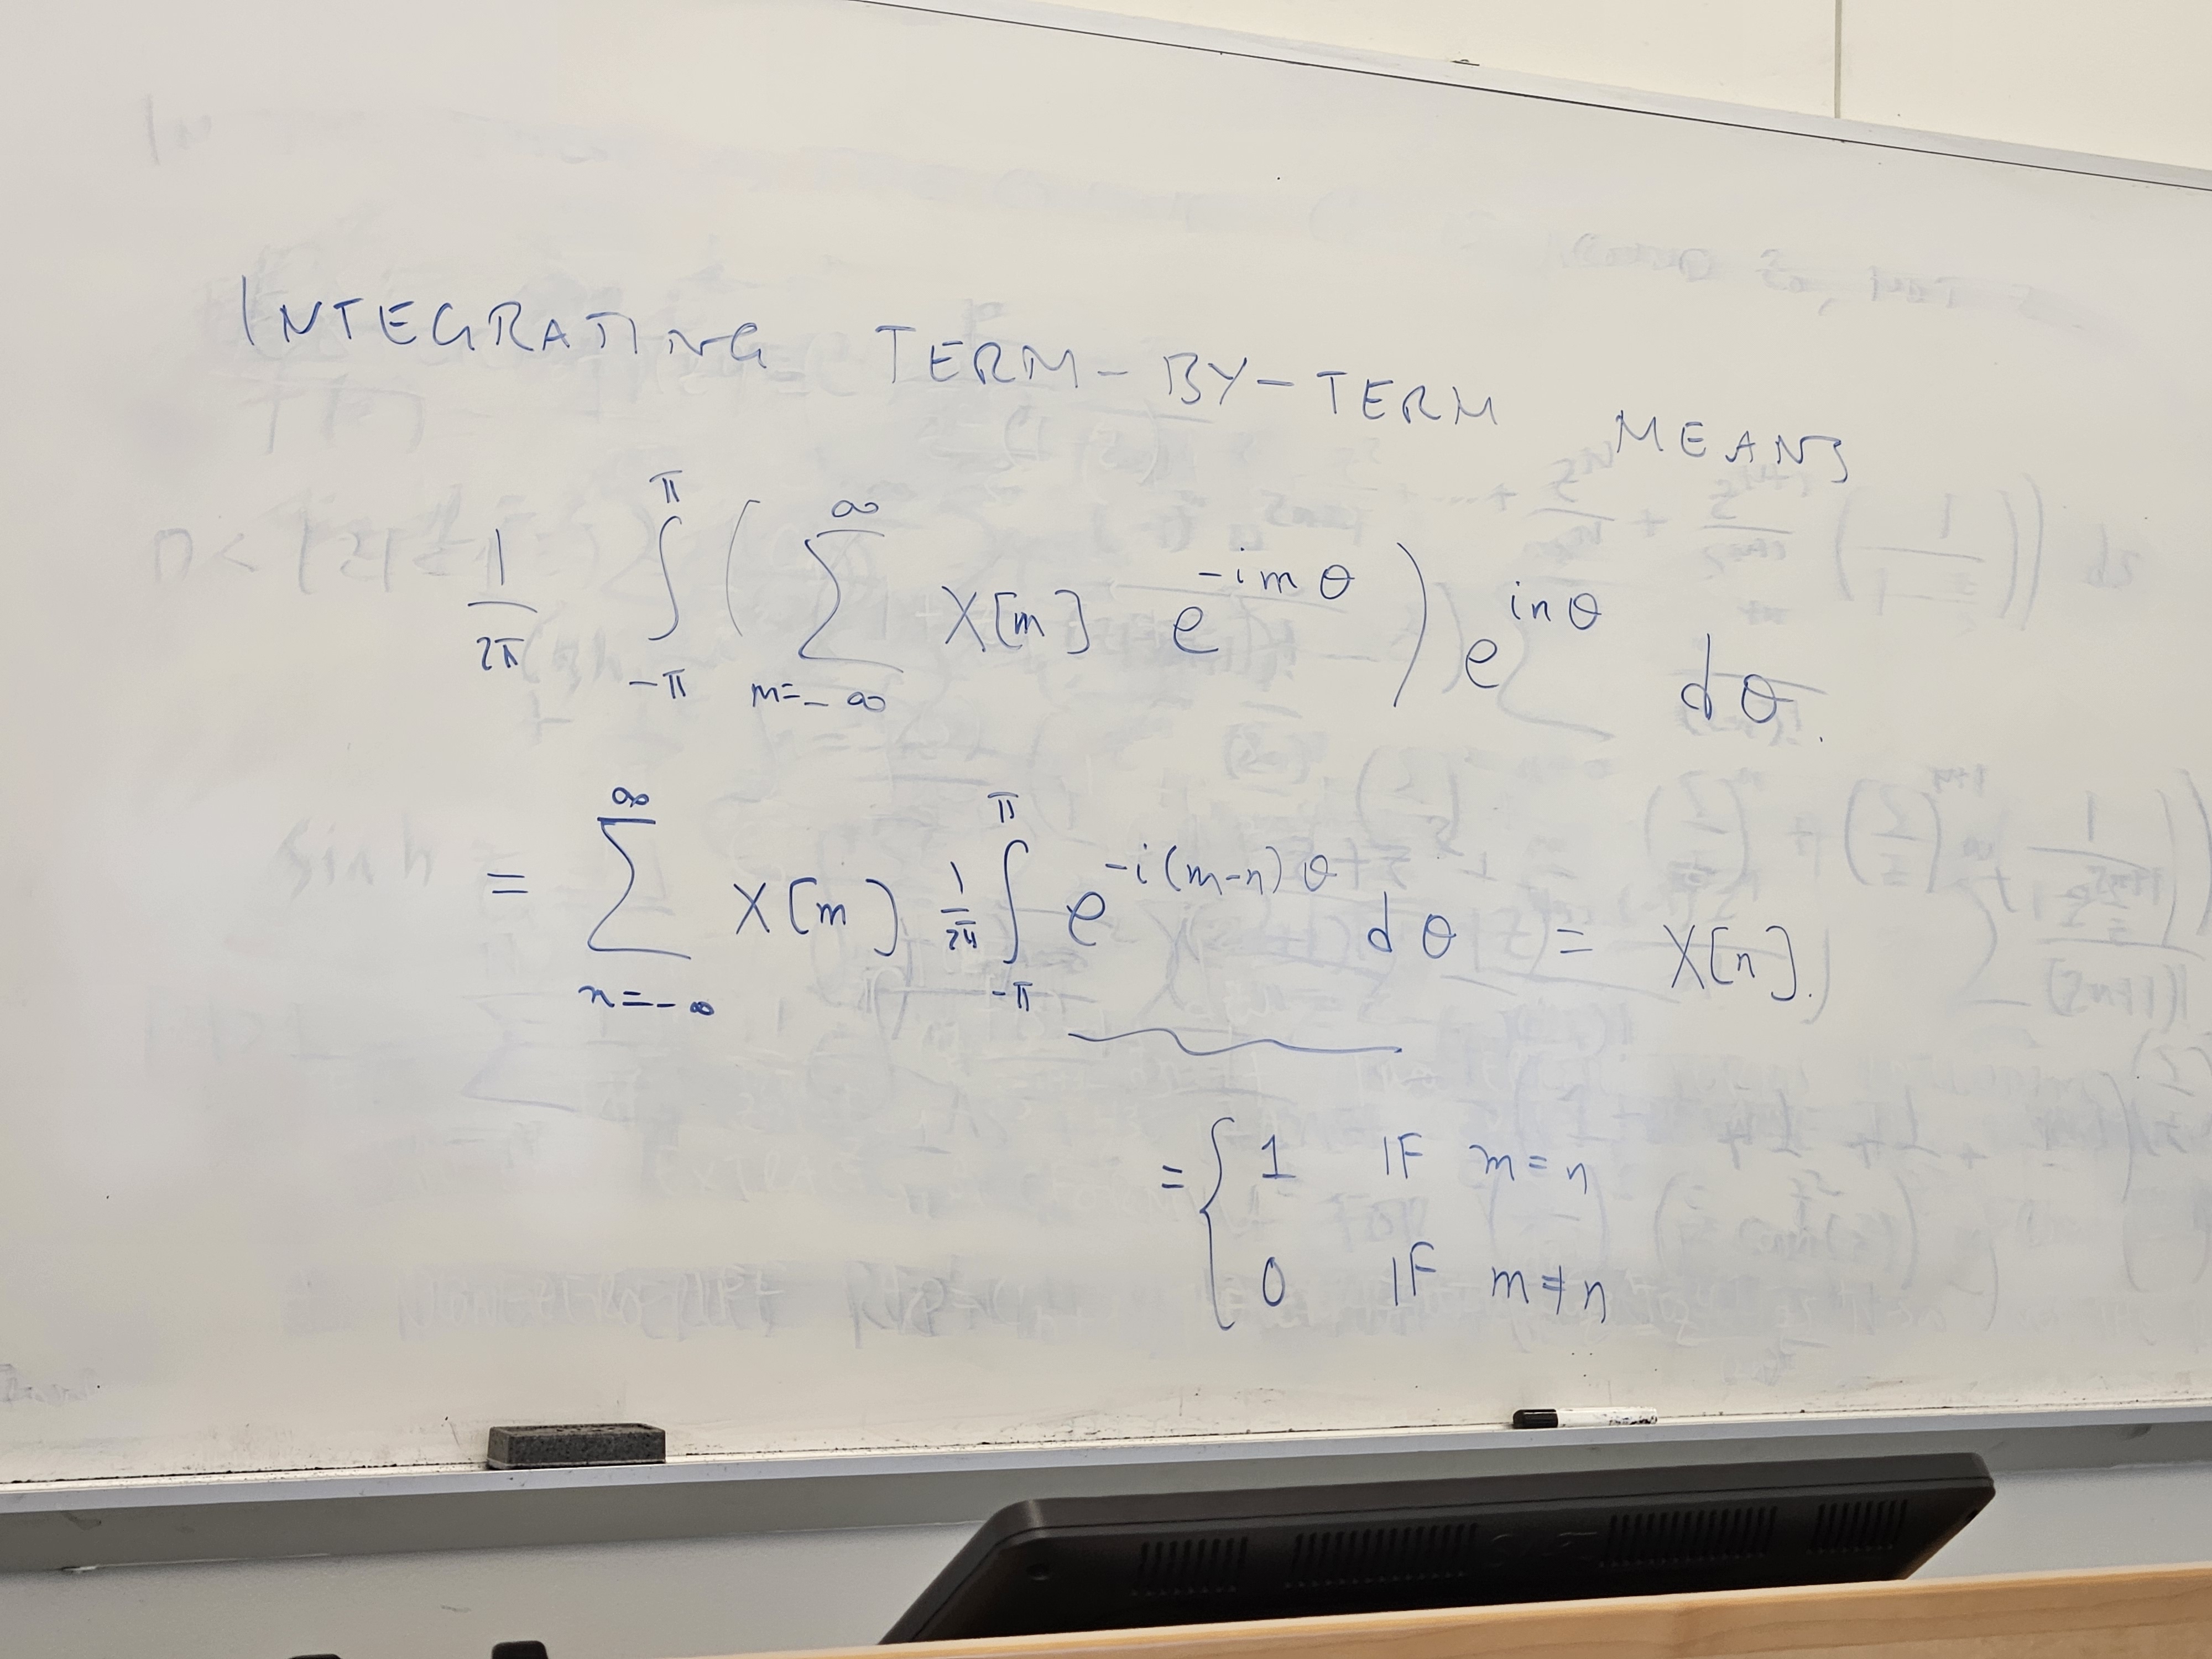 INTEGRATING TERM-BY-TERM MEANS
1/2π ∫_{-π}^{π} ( ∑_{m=-∞}^{∞} X[m] e^{-imθ} ) e^{inθ} dθ.
= ∑_{n=-∞}^{∞} X[m] 1/2π ∫_{-π}^{π} e^{-i(m-n)θ} dθ = X[n].
= { 1 IF m=n
0 IF m≠n